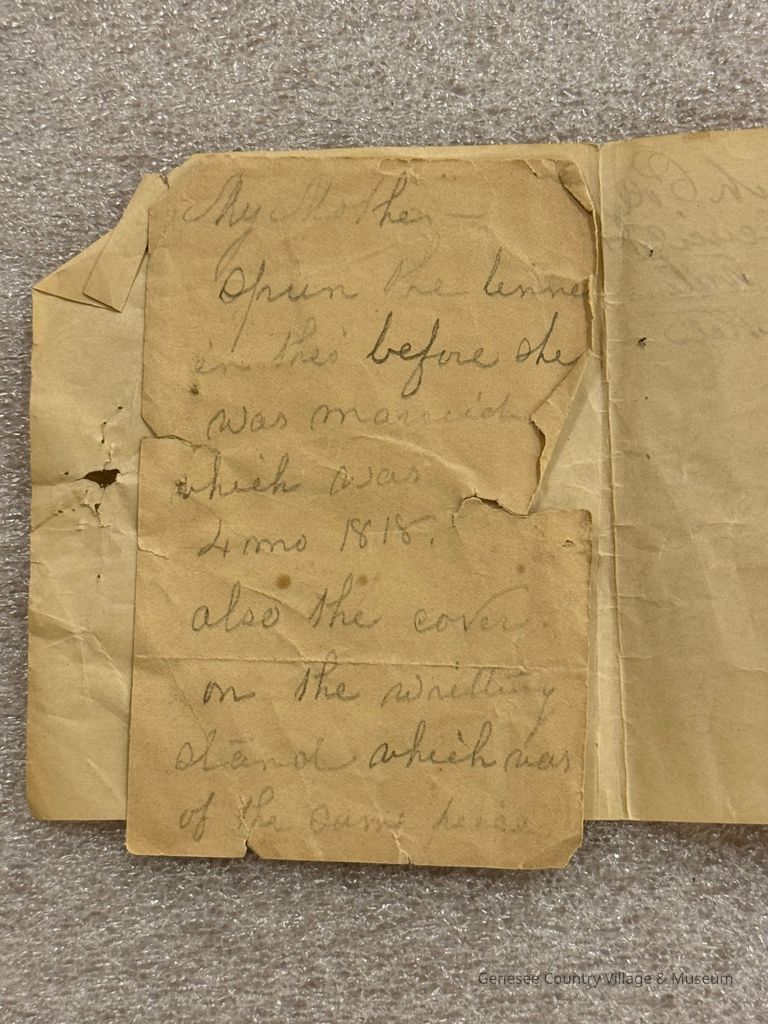 My Mother —
spun the linne
in this before she
was married
which was
4 mo 1818.
also the cover
on the writting
stand which was
of the same peice
Genesee Country Village & Museum